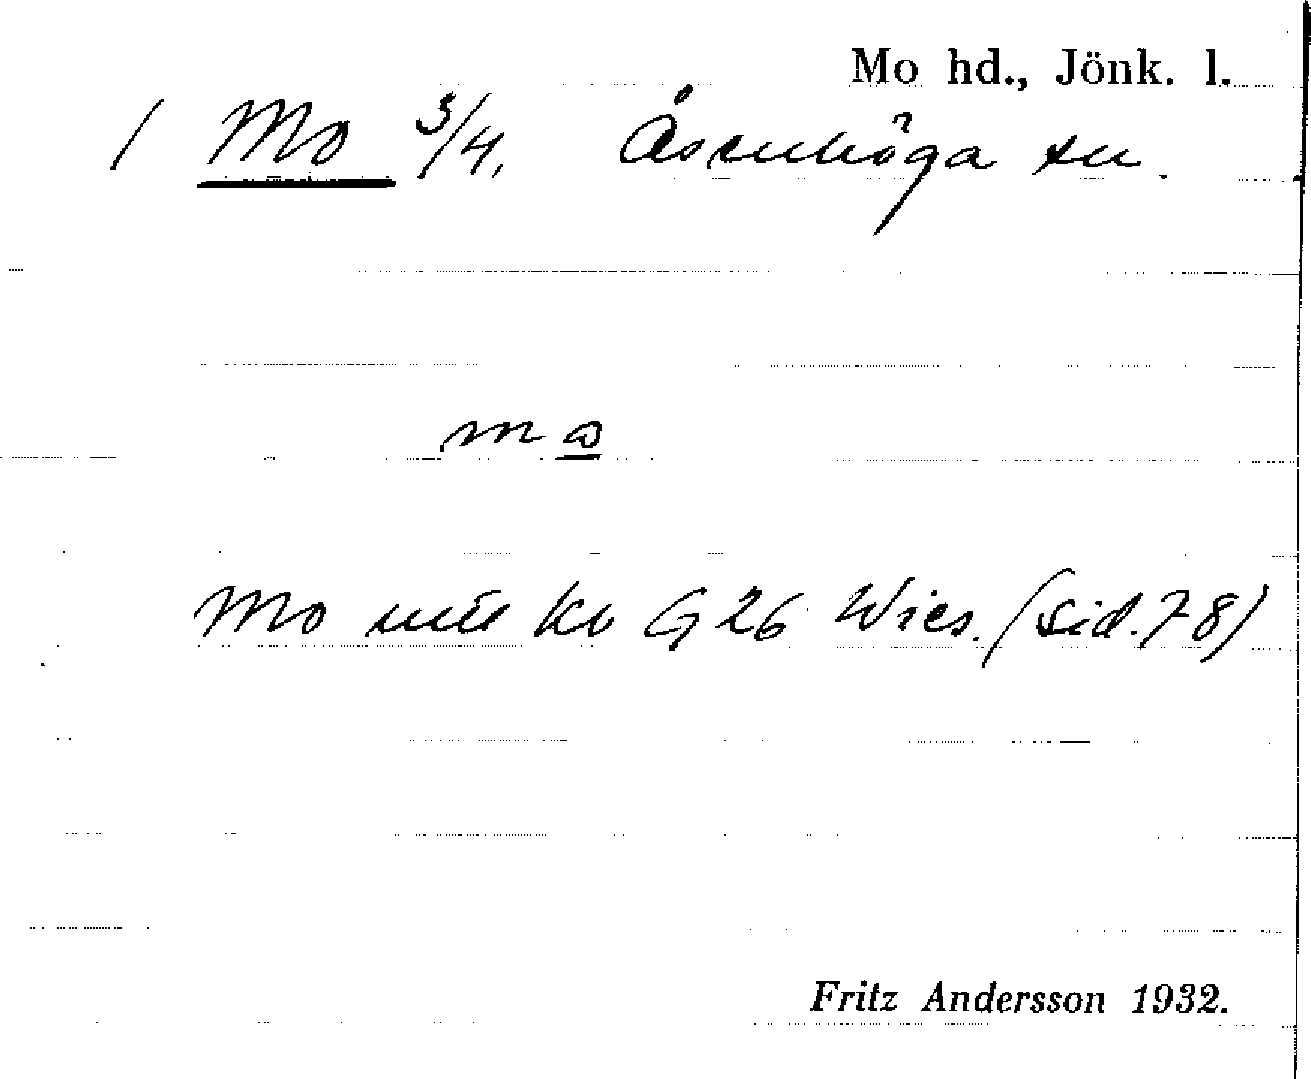 Mo hd., Jönk. l.
1 Mo 3/4. Åsenhöga sn.
m
Mo kb G 26 Wies. (Sid. 78)
Fritz Andersson 1932.